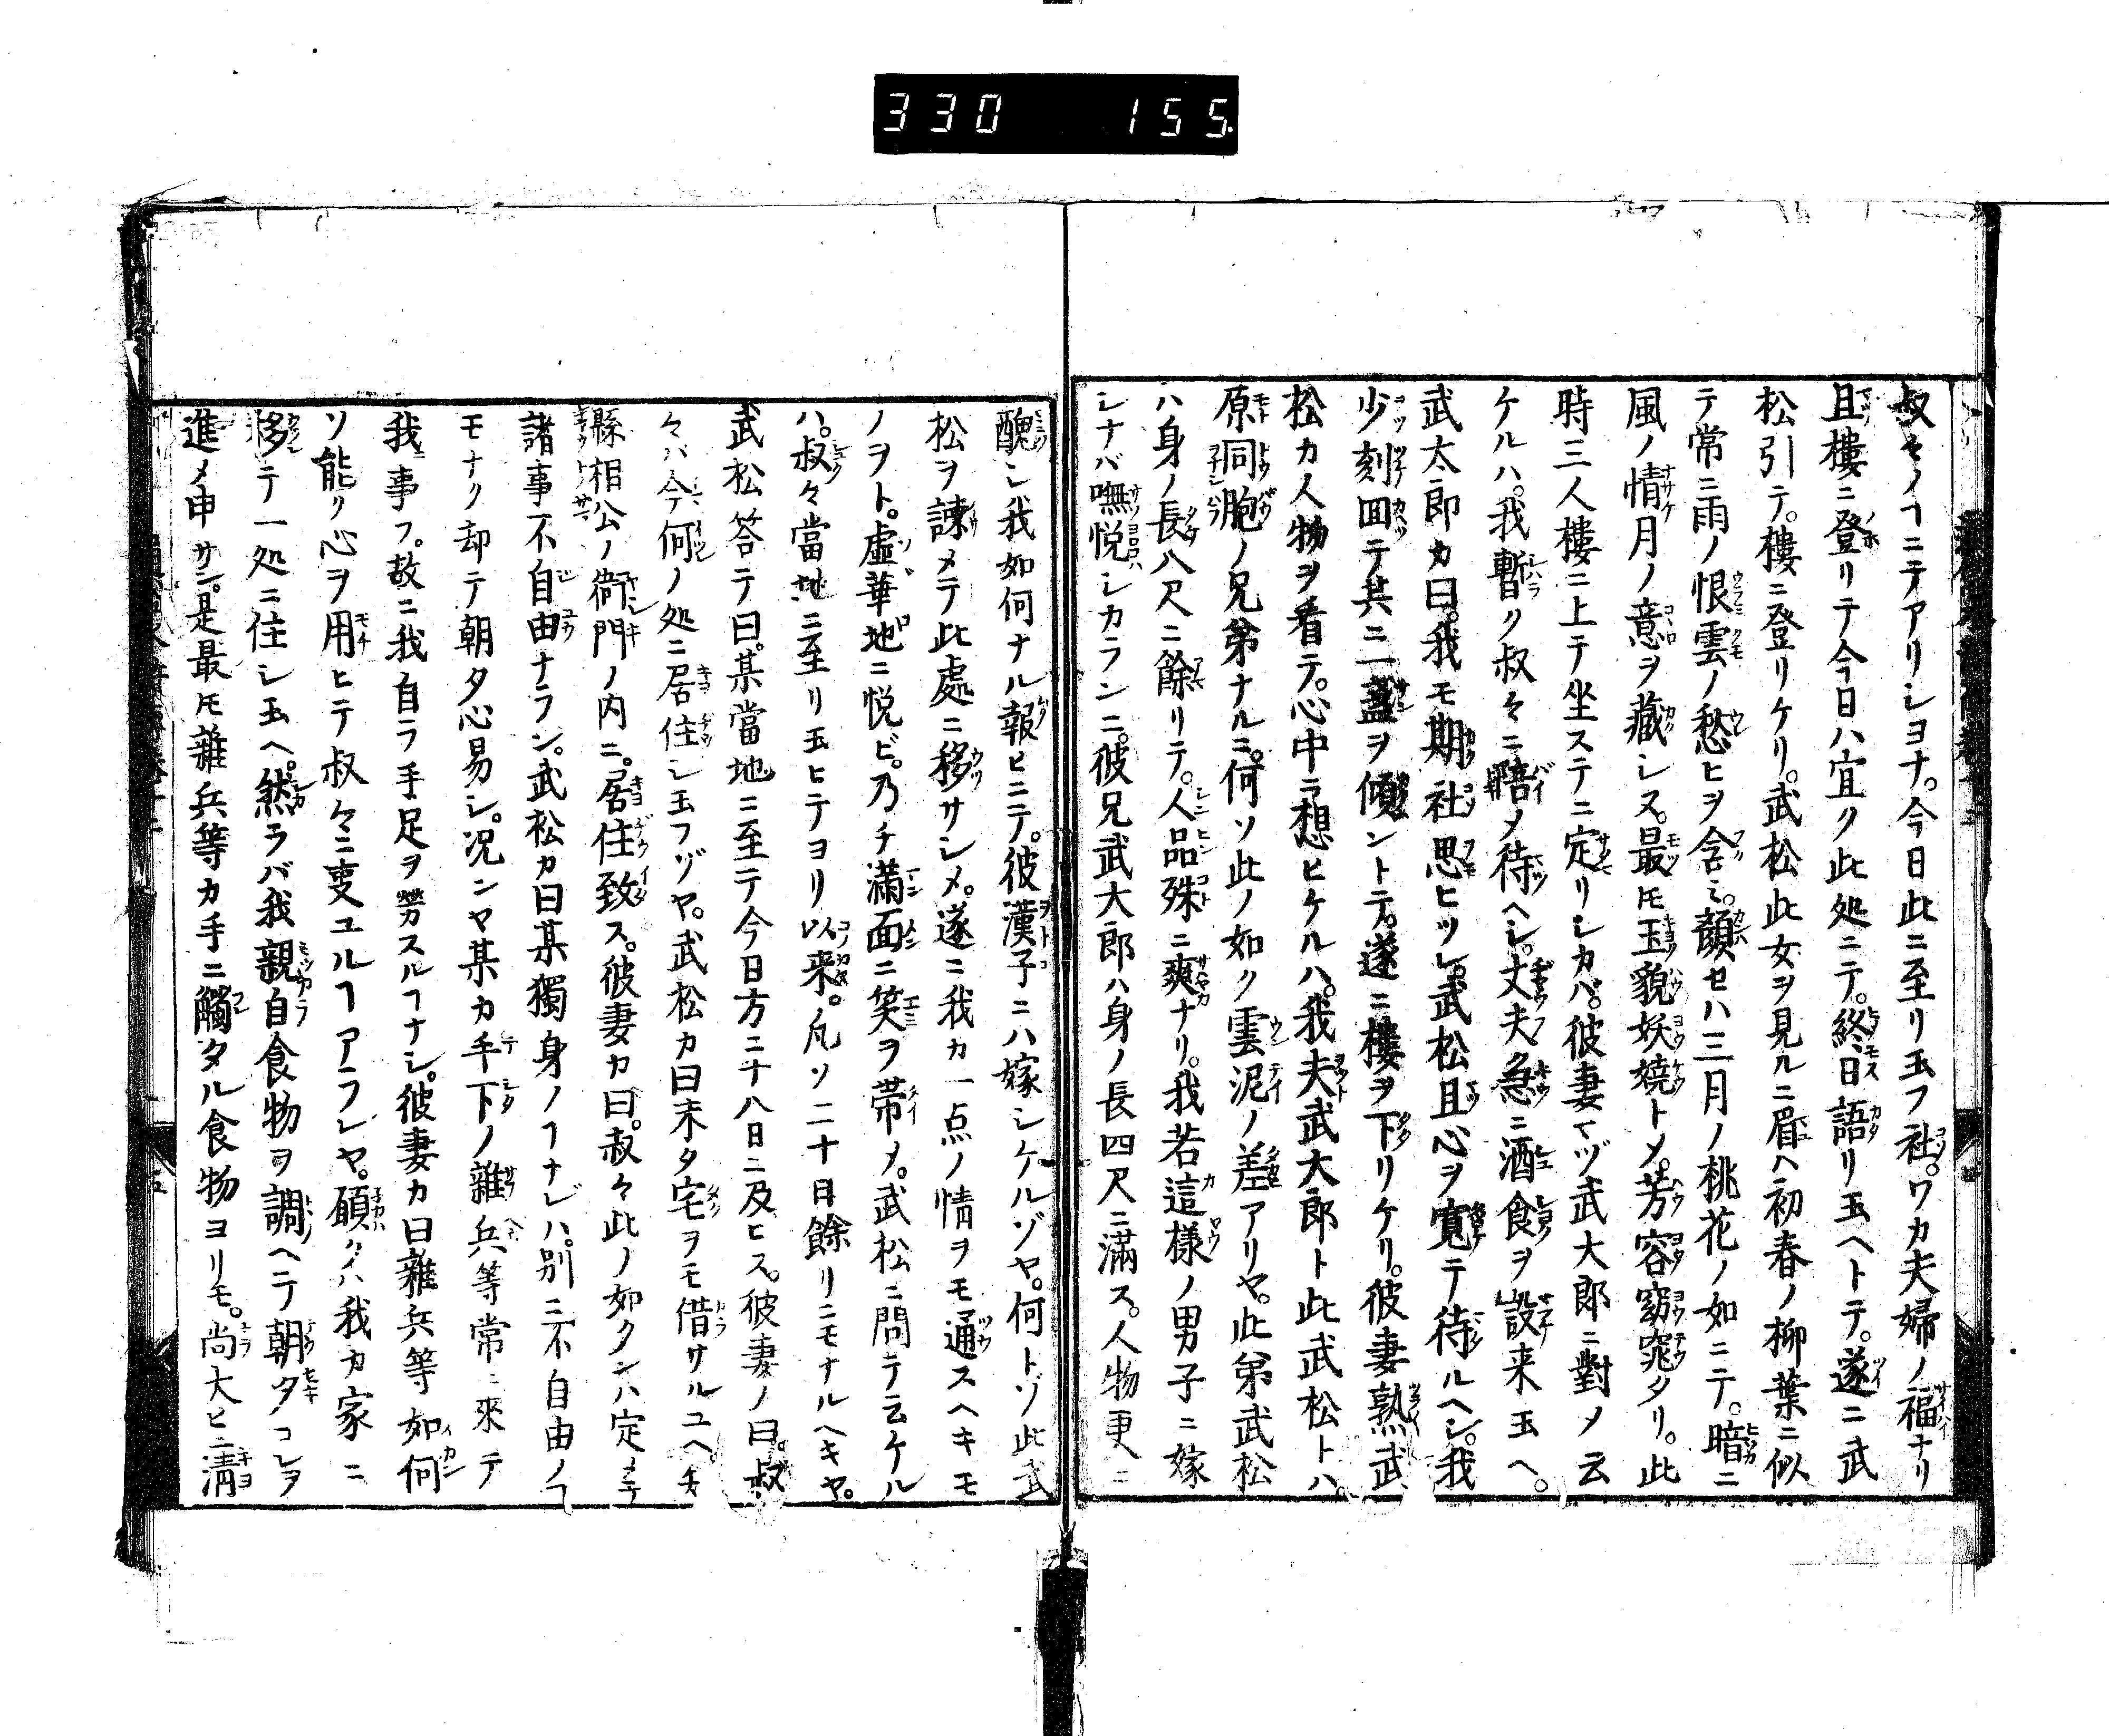 330 155
叔々ノヿニテアリシヨナ。今日此ニ至リ玉フ社。ワカ夫婦ノ福ナリ
且樓ニ登リテ今日ハ宜ク此処ニテ。終日語リ玉ヘトテ。遂ニ武
松引テ。樓ニ登リケリ。武松此女ヲ見ルニ眉ハ初春ノ柳葉ニ似
テ常ニ雨ノ恨雲ノ愁ヒヲ含ミ。顔セハ三月ノ桃花ノ如ニテ。暗ニ
風ノ情月ノ意ヲ藏シヌ。最モ玉貌妖嬈トメ。芳容窈窕タリ。此
時三人樓ニ上テ坐ステニ定リシカバ。彼妻マヅ武大郎ニ對メ云
ケルハ。我暫ク叔々ニ賠メ待ヘシ。丈夫急ニ酒食ヲ設来玉ヘ。
武太郎カ曰。我モ期社思ヒツレ。武松且心ヲ寬テ待ルヘシ。我
少刻囬テ共ニ一盞ヲ傾ントテ。遂ニ樓ヲ下リケリ。彼妻熟武
松カ人物ヲ看テ。心中ニ想ヒケルハ。我夫武大郎ト此武松トハ。
原同胞ノ兄弟ナルニ。何ソ此ノ如ク雲泥ノ差アリヤ。此弟武松
ハ身ノ長八尺ニ餘リテ。人品殊ニ爽ナリ。我若這様ノ男子ニ嫁
シナバ嘸悦シカランニ。彼兄武大郎ハ身ノ長四尺ニ滿ス。人物更ニ
醜シ我如何ナル報ヒニテ。彼漢子ニハ嫁シケルゾヤ。何トゾ此武
松ヲ諌メテ此處ニ移サシメ。遂ニ我カ一点ノ情ヲモ通スヘキモ
ノヲト。虚華地ニ悦ビ。乃チ滿面ニ笑ヲ帶メ。武松ニ問テ云ケル
ハ。叔々當地ニ至リ玉ヒテヨリ以来。凡ソ二十日餘リニモナルヘキヤ。
武松答テ曰。某當地ニ至テ今日方ニ十八日ニ及ヒス。彼妻ノ曰。叔
々ハ今何ノ処ニ居住シ玉フゾヤ。武松カ曰未タ宅ヲモ借サルユヘ。
縣相公ノ衙門ノ内ニ。居住致ス。彼妻カ曰。叔々此ノ如クンハ定メテ
諸事不自由ナラン。武松カ曰某獨身ノヿナレハ。別ニ不自由ノヿ
モナク却テ朝夕心易シ。况ンヤ某カ手下ノ雜兵等常ニ來テ
我ニ事フ。故ニ我自ラ手足ヲ勞スルヿナシ。彼妻カ曰雜兵等如何
ソ能ク心ヲ用ヒテ叔々ニ叓ユルヿアランヤ。願クハ我カ家ニ
移テ一処ニ住シ玉ヘ。然ラバ我親自食物ヲ調ヘテ朝夕コレヲ
進メ申サン。是最モ雜兵等カ手ニ觸タル食物ヨリモ。尚大ヒニ清